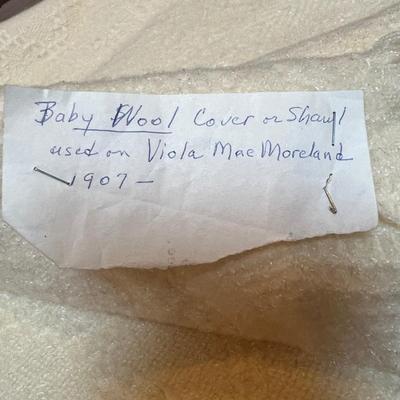 Baby Wool Cover or Shawl
used on Viola Mae Moreland
1907 –